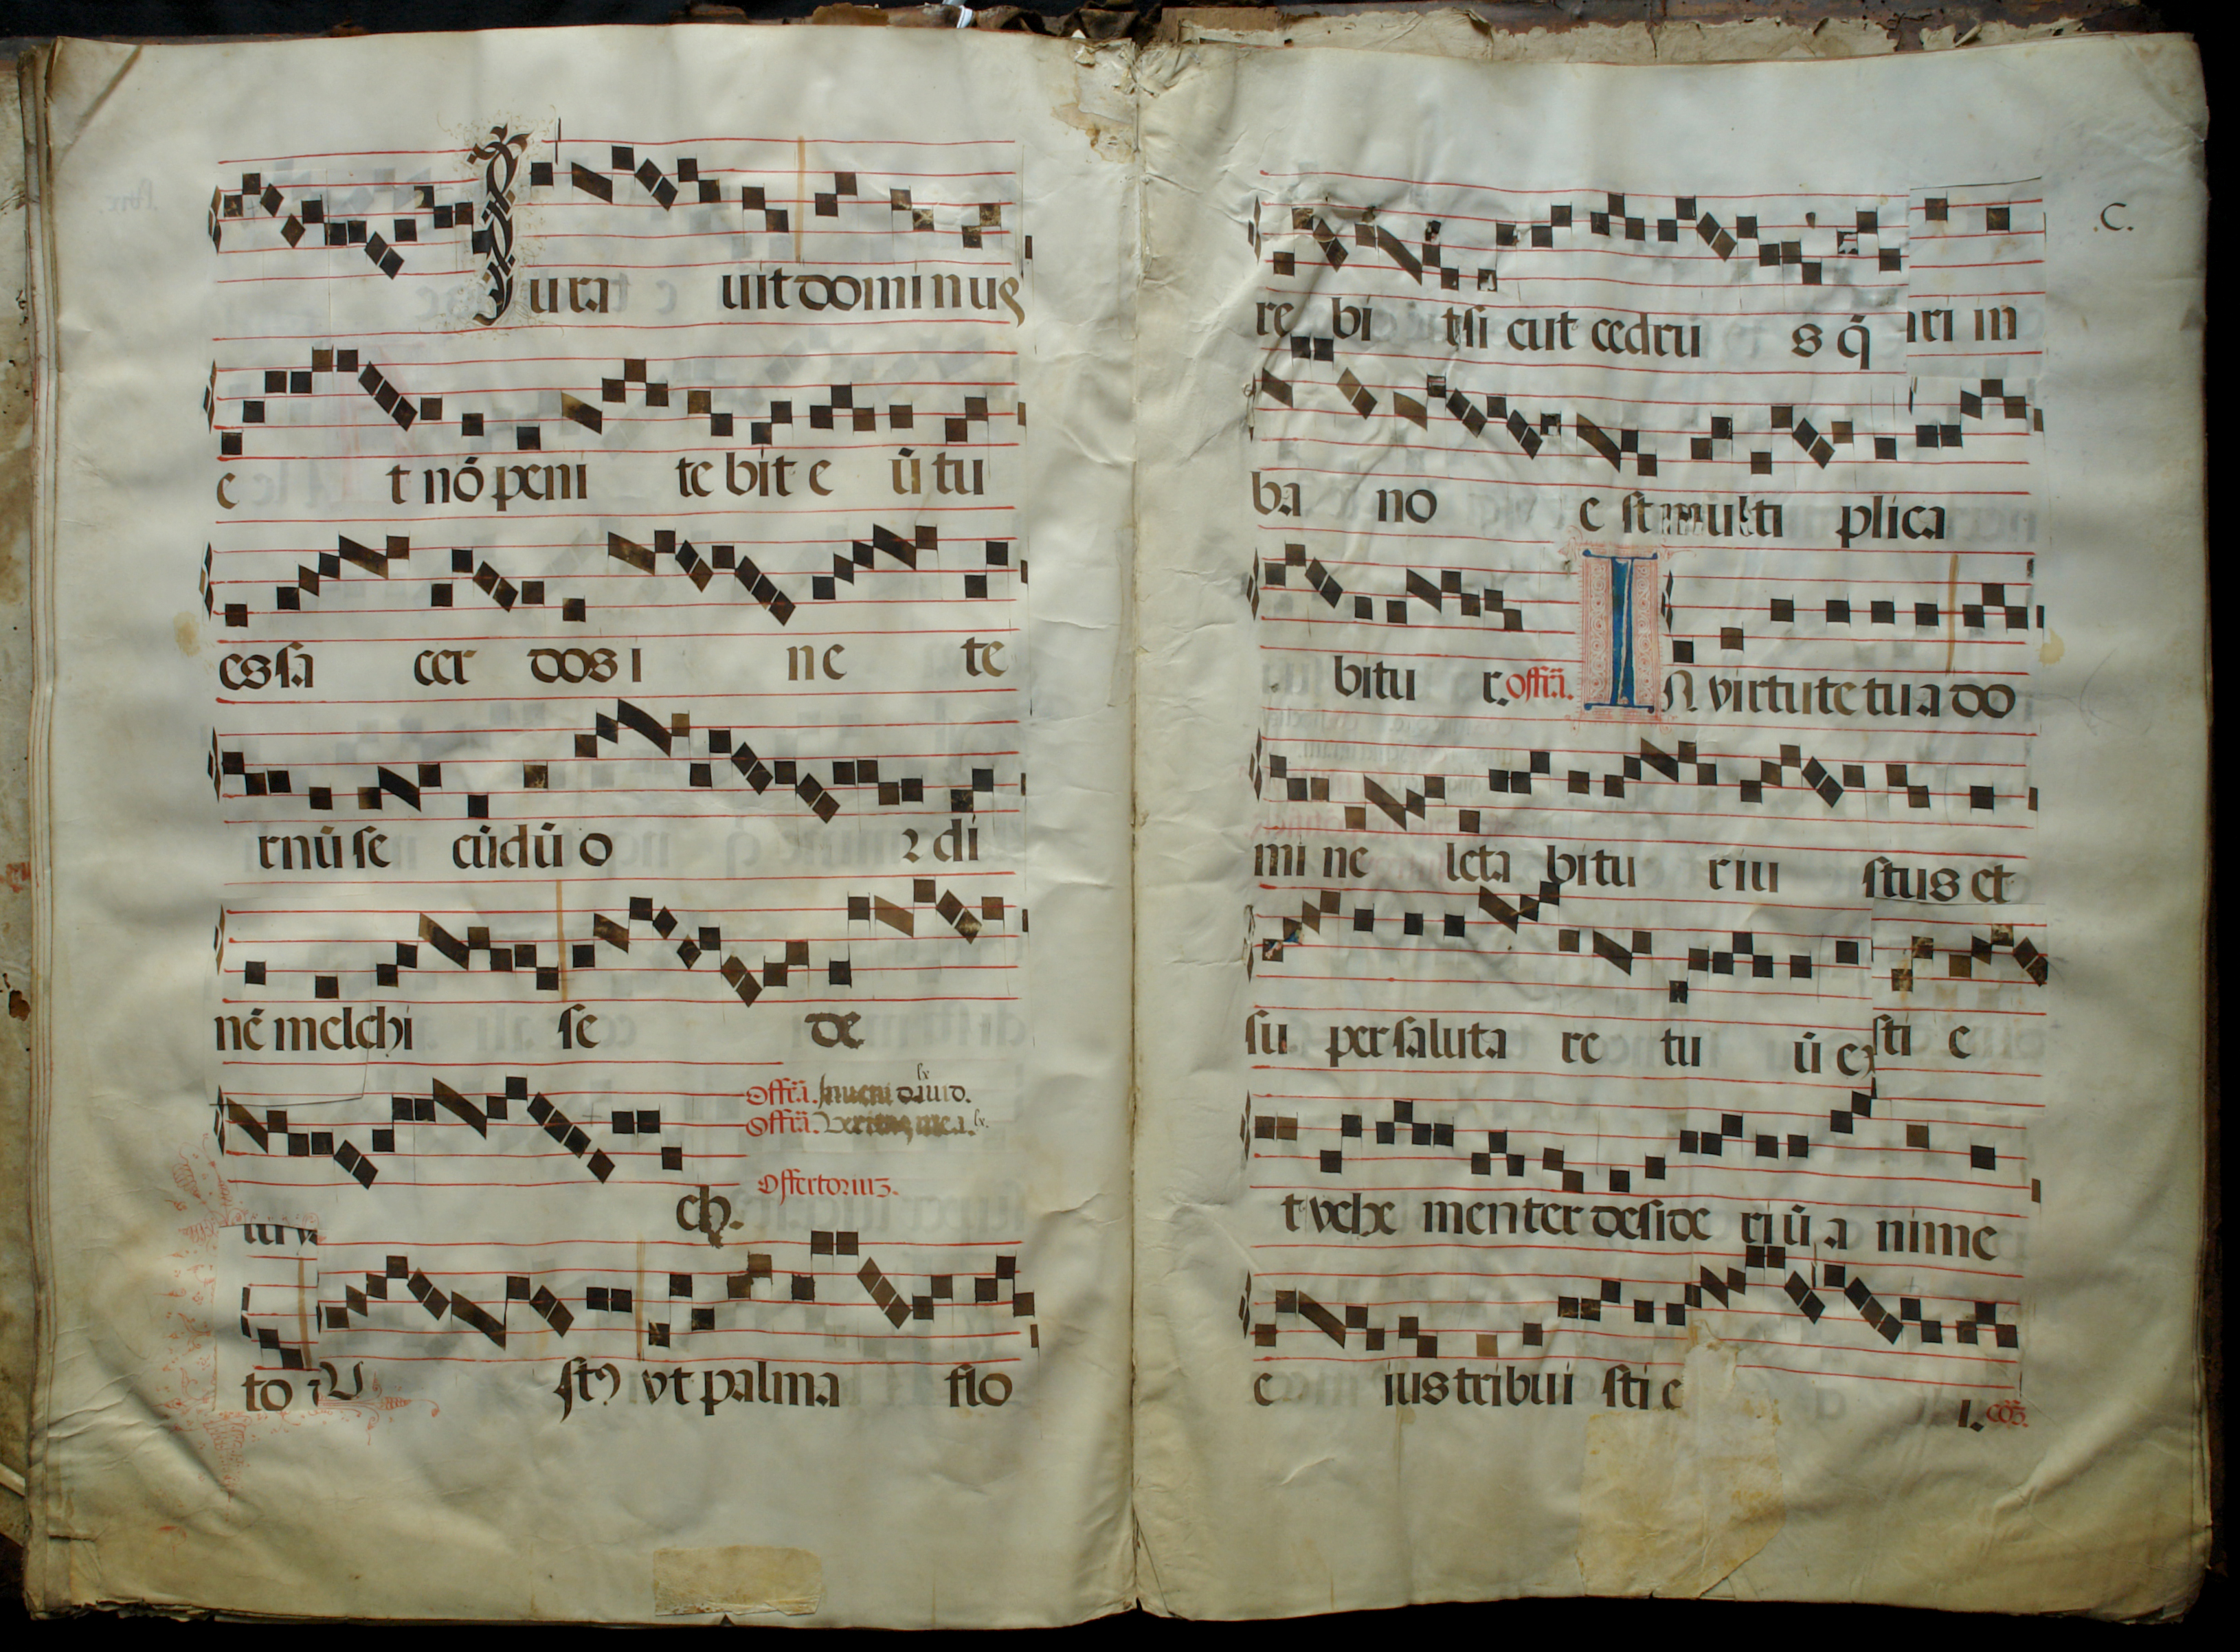 Jura uit domi nus
e t nō peni te bit e ū tu
es sa cer dos i ne te
rnū se cūdū o r di
nē melchi se de
Offrā. Inueni dauid. lx
Offrā. Veritas mea. lx.
ch. Offertoriuz.
to
V stꝰ vt palma flo
C.
re bi t si cut cedru s q̄ ari in
ba no e st multi plica
bitu r. offrā. IN virtute tua do
mi ne leta bitu r iu stus et
su per saluta re tu ū ex sti e
t vehe menter deside ri ū a nime
e ius tribui sti e
I. cōz.